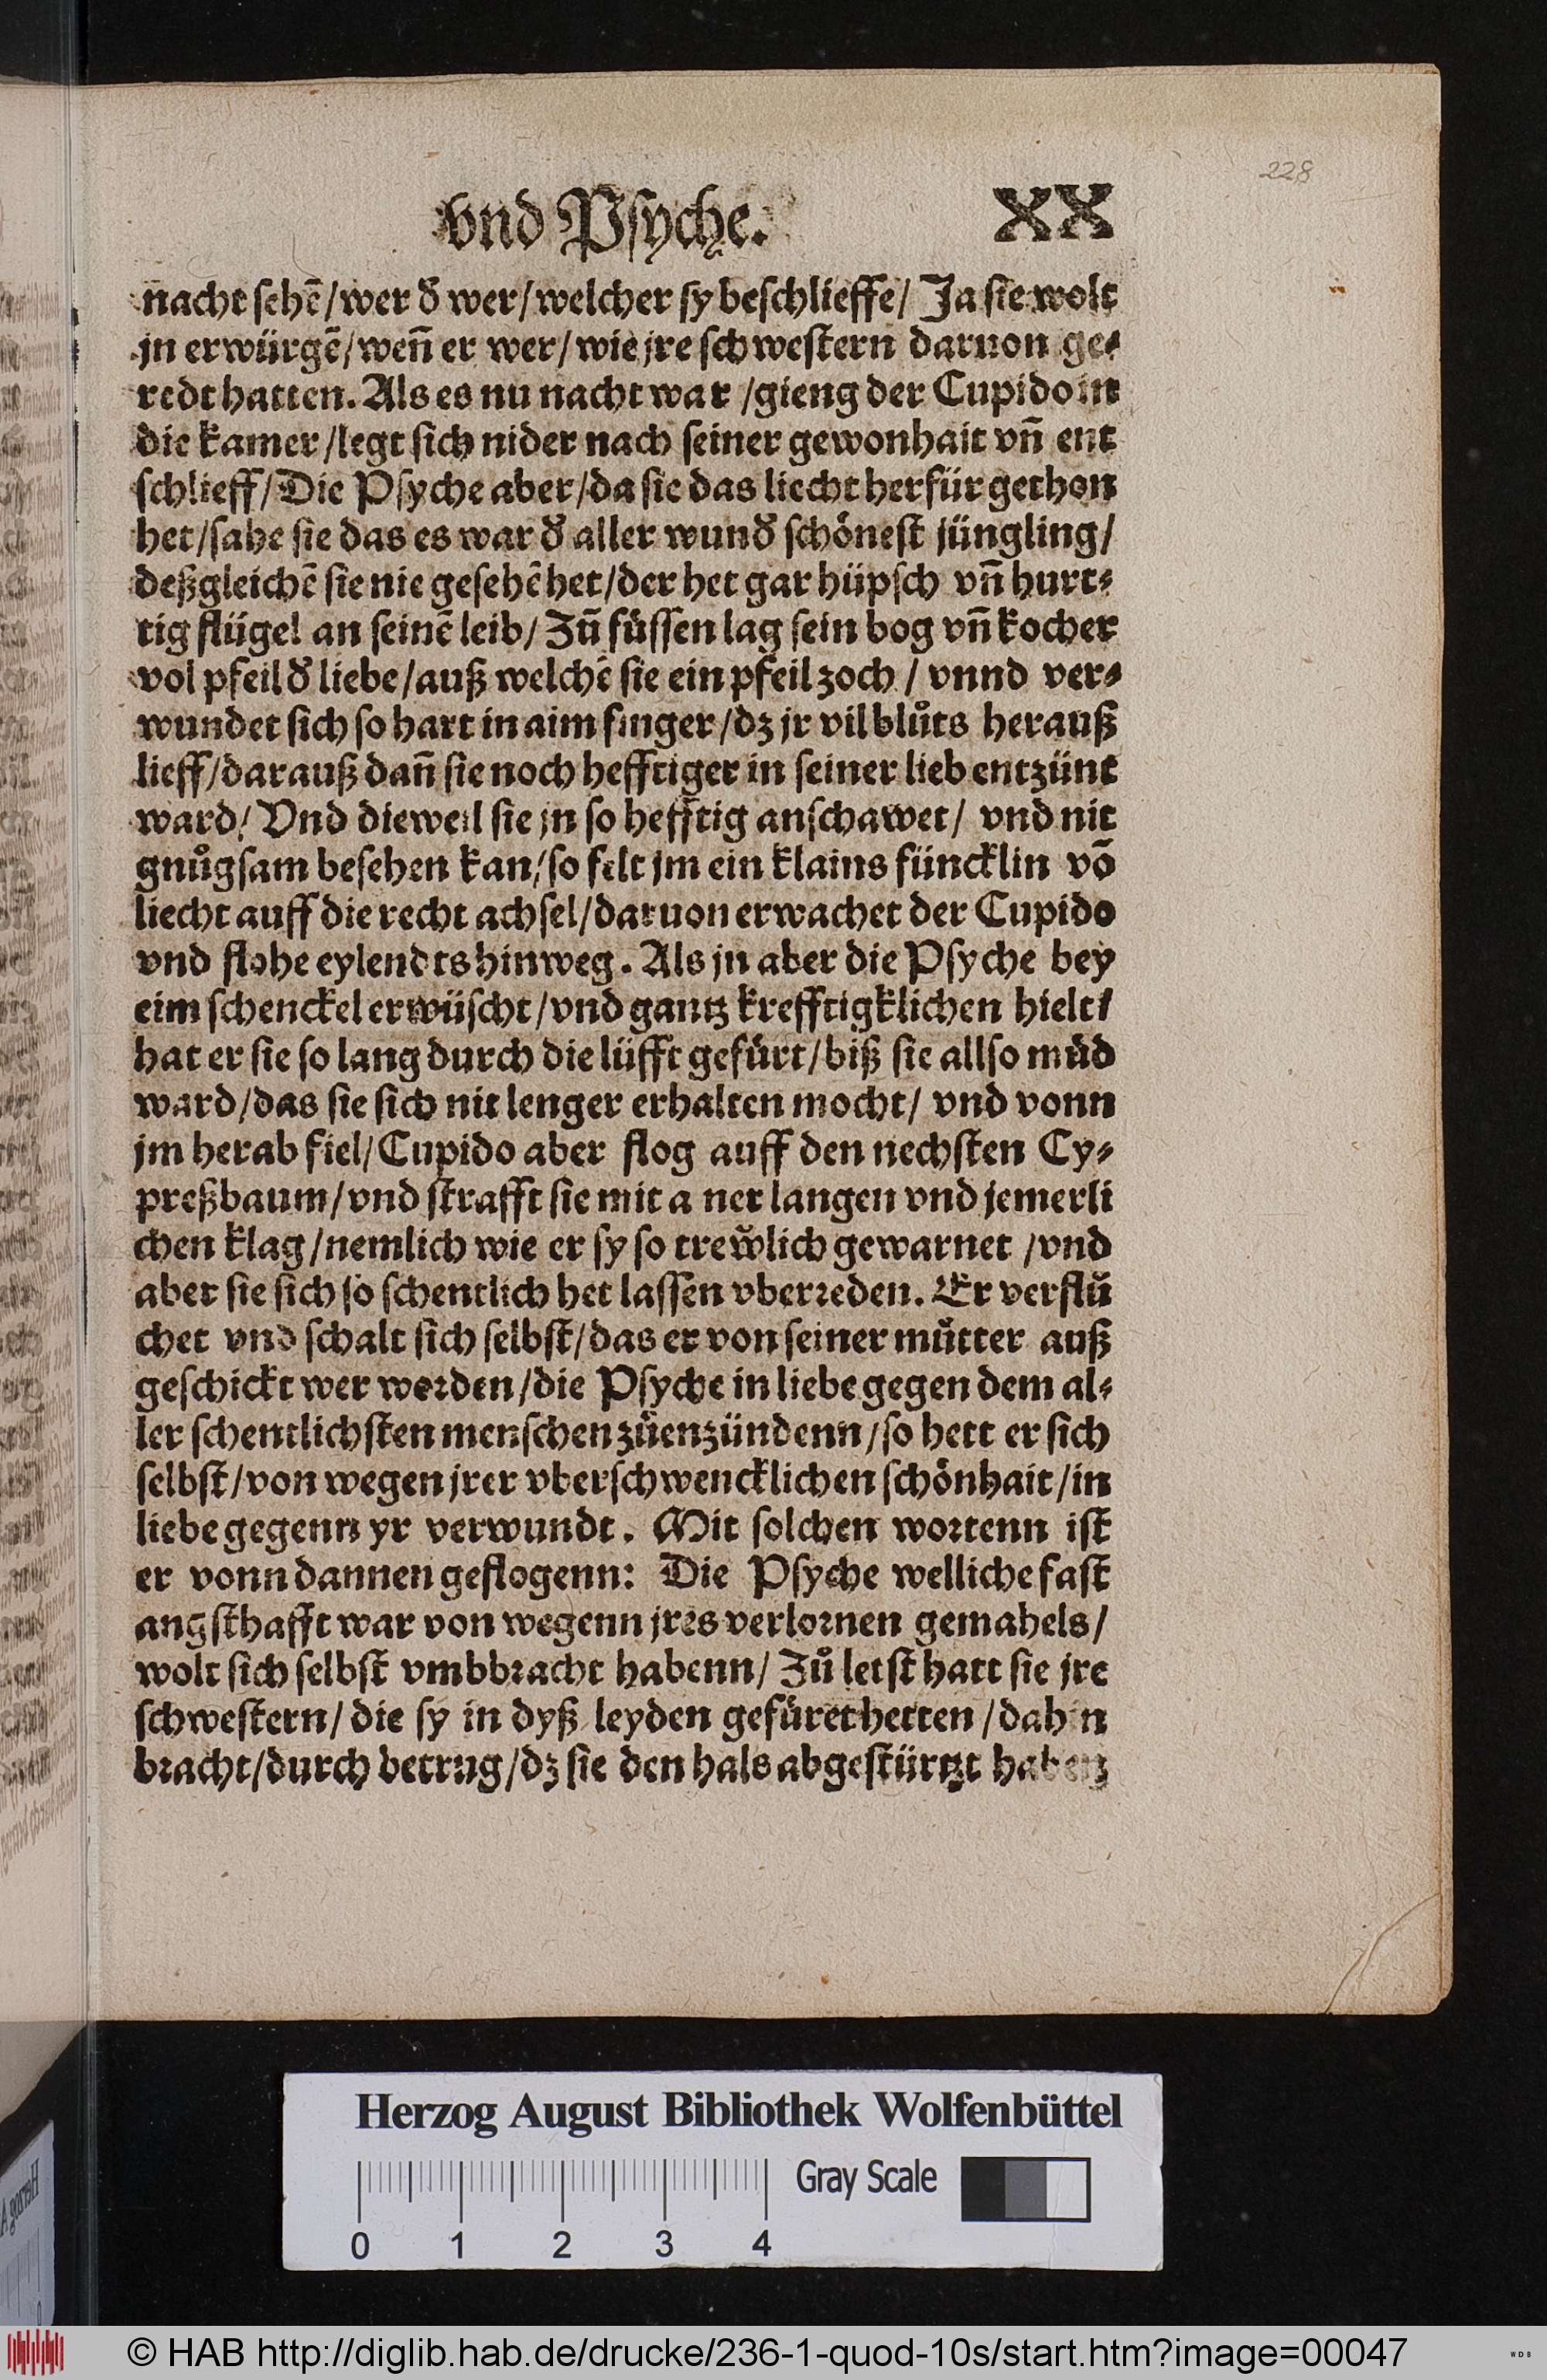 228
vnd Pſyche. XX
nacht ſehē/wer ð wer/welcher ſy beſchlieffe/ Ja ſie wolt
jn erwürgē/weñ er wer/wie jre ſchweſtern daruon ge⸗
redt hatten. Als es nu nacht war /gieng der Cupido in
die kamer/legt ſich nider nach ſeiner gewonhait vñ ent
ſchlieff/Die Pſyche aber/da ſie das liecht herfür gethon
het/ſahe ſie das es war ð aller wunð ſchöneſt jüngling/
deßgleichē ſie nie geſehē het/der het gar hüpſch vñ hurt⸗
tig flügel an ſeinē leib/ Zů füſſen lag ſein bog vñ kocher
vol pfeil ð liebe/auß welchē ſie ein pfeil zoch / vnnd ver⸗
wundet ſich ſo hart in aim finger/dz jr vil blůts herauß
lieff/darauß dañ ſie noch hefftiger in ſeiner lieb entzünt
ward/ Vnd dieweil ſie jn ſo hefftig anſchawet/ vnd nit
gnůgſam beſehen kan/ſo felt jm ein klains füncklin vō
liecht auff die recht achſel/daruon erwachet der Cupido
vnd flohe eylendts hinweg. Als jn aber die Pſyche bey
eim ſchenckel erwüſcht/vnd gantz krefftigklichen hielt/
hat er ſie ſo lang durch die lüfft gefürt/biß ſie allſo müd
ward/das ſie ſich nit lenger erhalten mocht/ vnd vonn
jm herab fiel/Cupido aber flog auff den nechſten Cy⸗
preßbaum/vnd ſtrafft ſie mit a ner langen vnd jemerli
chen klag/nemlich wie er ſy ſo trewlich gewarnet /vnd
aber ſie ſich ſo ſchentlich het laſſen vberreden. Er verflů
chet vnd ſchalt ſich ſelbſt/das er von ſeiner můtter auß
geſchickt wer worden/die Pſyche in liebe gegen dem al⸗
ler ſchentlichſten menſchen zůenzündenn/ſo hett er ſich
ſelbſt/von wegen jrer vberſchwencklichen ſchönhait/in
liebe gegenn yr verwundt. Mit ſolchen wortenn iſt
er vonn dannen geflogenn: Die Pſyche welliche faſt
angſthafft war von wegenn jres verlornen gemahels/
wolt ſich ſelbſt vmbbracht habenn/ Zů letſt hatt ſie jre
ſchweſtern/ die ſy in dyß leyden gefüret hetten /dah n
bracht/durch betrug/dz ſie den hals abgeſtürtzt haben
Herzog August Bibliothek Wolfenbüttel
Gray Scale
0 1 2 3 4
© HAB http://diglib.hab.de/drucke/236-1-quod-10s/start.htm?image=00047